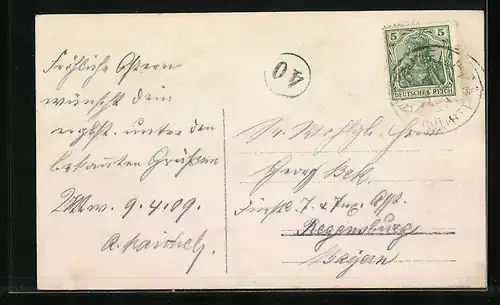 Fröhliche Ostern
wünscht dein
unter den
bekannten Grüßen
9.4.09.
40
5 5
DEUTSCHES REICH
Sr. Wohlgb. Herrn
Georg Bek
Fürstl. T. & Tax. Ass.
Regensburg
Bayern